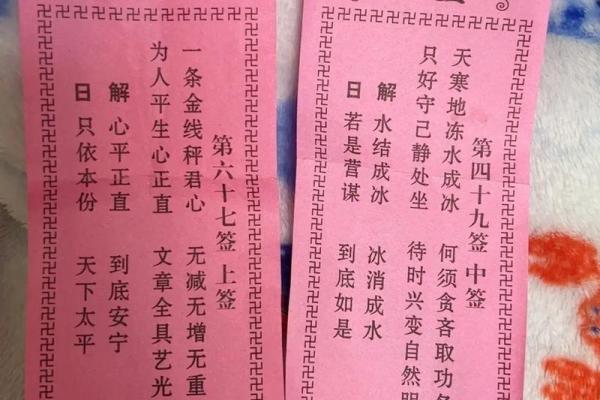 第六十七签 上签
一条金线秤君心 无减无增无重
为人平生心正直 文章全具艺光
解 心平正直 到底安宁
日 只依本份 天下太平
第四十九签 中签
天寒地冻水成冰 何须贪吝取功
只好守己静处坐 待时兴变自然明
解 水结成冰 冰消成水
日 若是营谋 到底如是